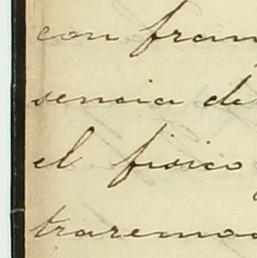 con fran
sencia de
el fisico
traremos